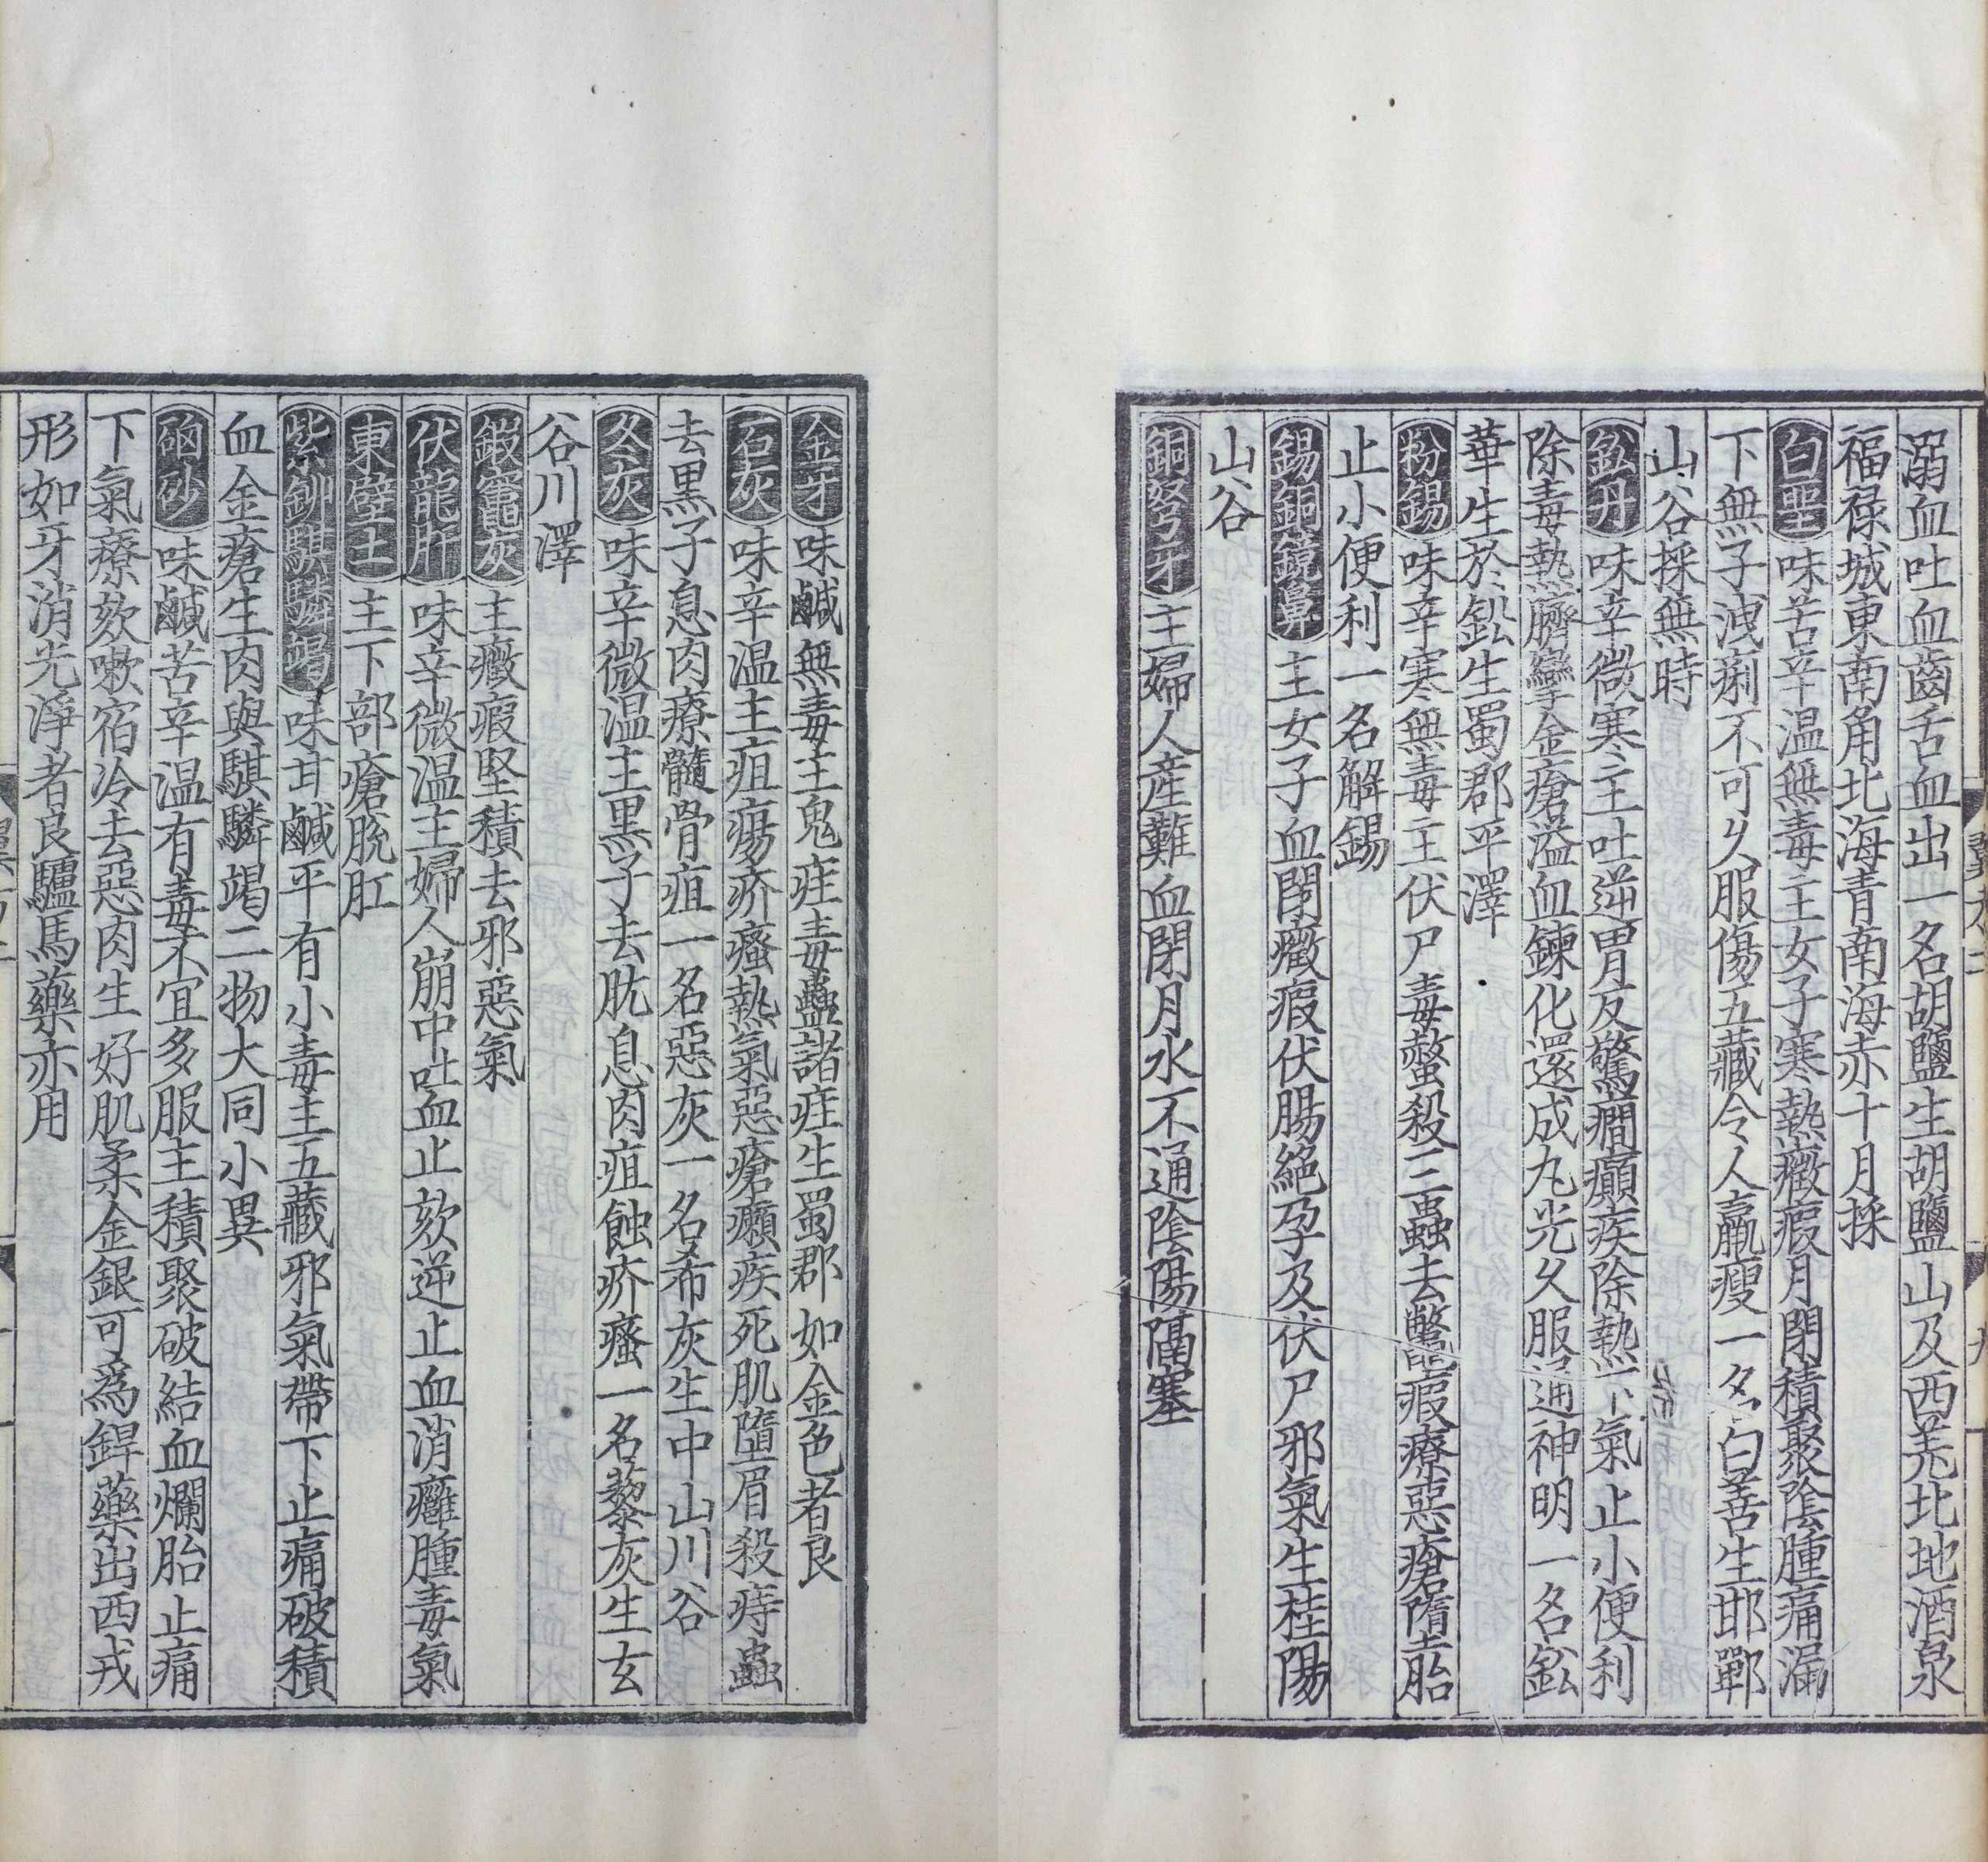 溺血吐血齒舌血出一名胡鹽生胡鹽山及西羌北地酒泉
福祿城東南角北海青南海赤十月採
白堊味苦辛温無毒主女子寒熱癥瘕月閉積聚陰腫痛漏
下無子洩痢不可久服傷五藏令人羸瘦一名白善生邯鄲
山谷採無時
鈆丹味辛微寒主吐逆胃反驚癇癲疾除熱下氣止小便利
除毒熱臍攣金瘡溢血鍊化還成九光久服通神明一名鈆
華生於鈆生蜀郡平澤
粉錫味辛寒無毒主伏尸毒螫殺三蟲去鼈瘕療惡瘡墮胎
止小便利一名解錫
錫銅鏡鼻主女子血閉癥瘕伏腸絕孕及伏尸邪氣生桂陽
山谷
銅弩牙主婦人産難血閉月水不通陰陽隔塞
金牙味鹹無毒主鬼疰毒蠱諸疰生蜀郡如金色者良
石灰味辛温主疽瘍疥瘙熱氣惡瘡癩疾死肌墮眉殺痔蟲
去黑子息肉療髓骨疽一名惡灰一名希灰生中山川谷
冬灰味辛微温主黑子去肬息肉疽蝕疥瘙一名藜灰生玄
谷川澤
鍛竈灰主癥瘕堅積去邪惡氣
伏龍肝味辛微温主婦人崩中吐血止欬逆止血消癰腫毒氣
東壁土主下部瘡脫肛
紫鉚騏驎竭味甘鹹平有小毒主五藏邪氣帶下止痛破積
血金瘡生肉與騏驎竭二物大同小異
硇砂味鹹苦辛温有毒不宜多服主積聚破結血爛胎止痛
下氣療欬嗽宿冷去惡肉生好肌柔金銀可爲銲藥出西戎
形如牙消光淨者良驢馬藥亦用